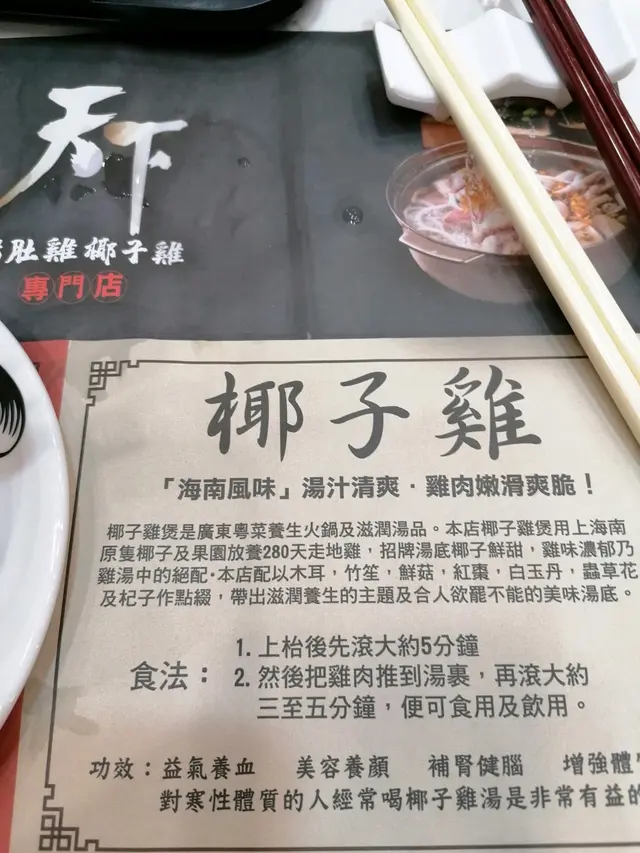 天下
肚雞椰子雞
專門店
椰子雞
「海南風味」湯汁清爽·雞肉嫩滑爽脆!
椰子雞煲是廣東粵菜養生火鍋及滋潤湯品。本店椰子雞煲用上海南
原隻椰子及果園放養280天走地雞,招牌湯底椰子鮮甜,雞味濃郁乃
雞湯中的絕配·本店配以木耳,竹笙,鮮菇,紅棗,白玉丹,蟲草花
及杞子作點綴,帶出滋潤養生的主題及合人欲罷不能的美味湯底。
食法:
1. 上枱後先滾大約5分鐘
2. 然後把雞肉推到湯裹,再滾大約
三至五分鐘,便可食用及飲用。
功效:益氣養血 美容養顏 補腎健腦 增強體
對寒性體質的人經常喝椰子雞湯是非常有益的